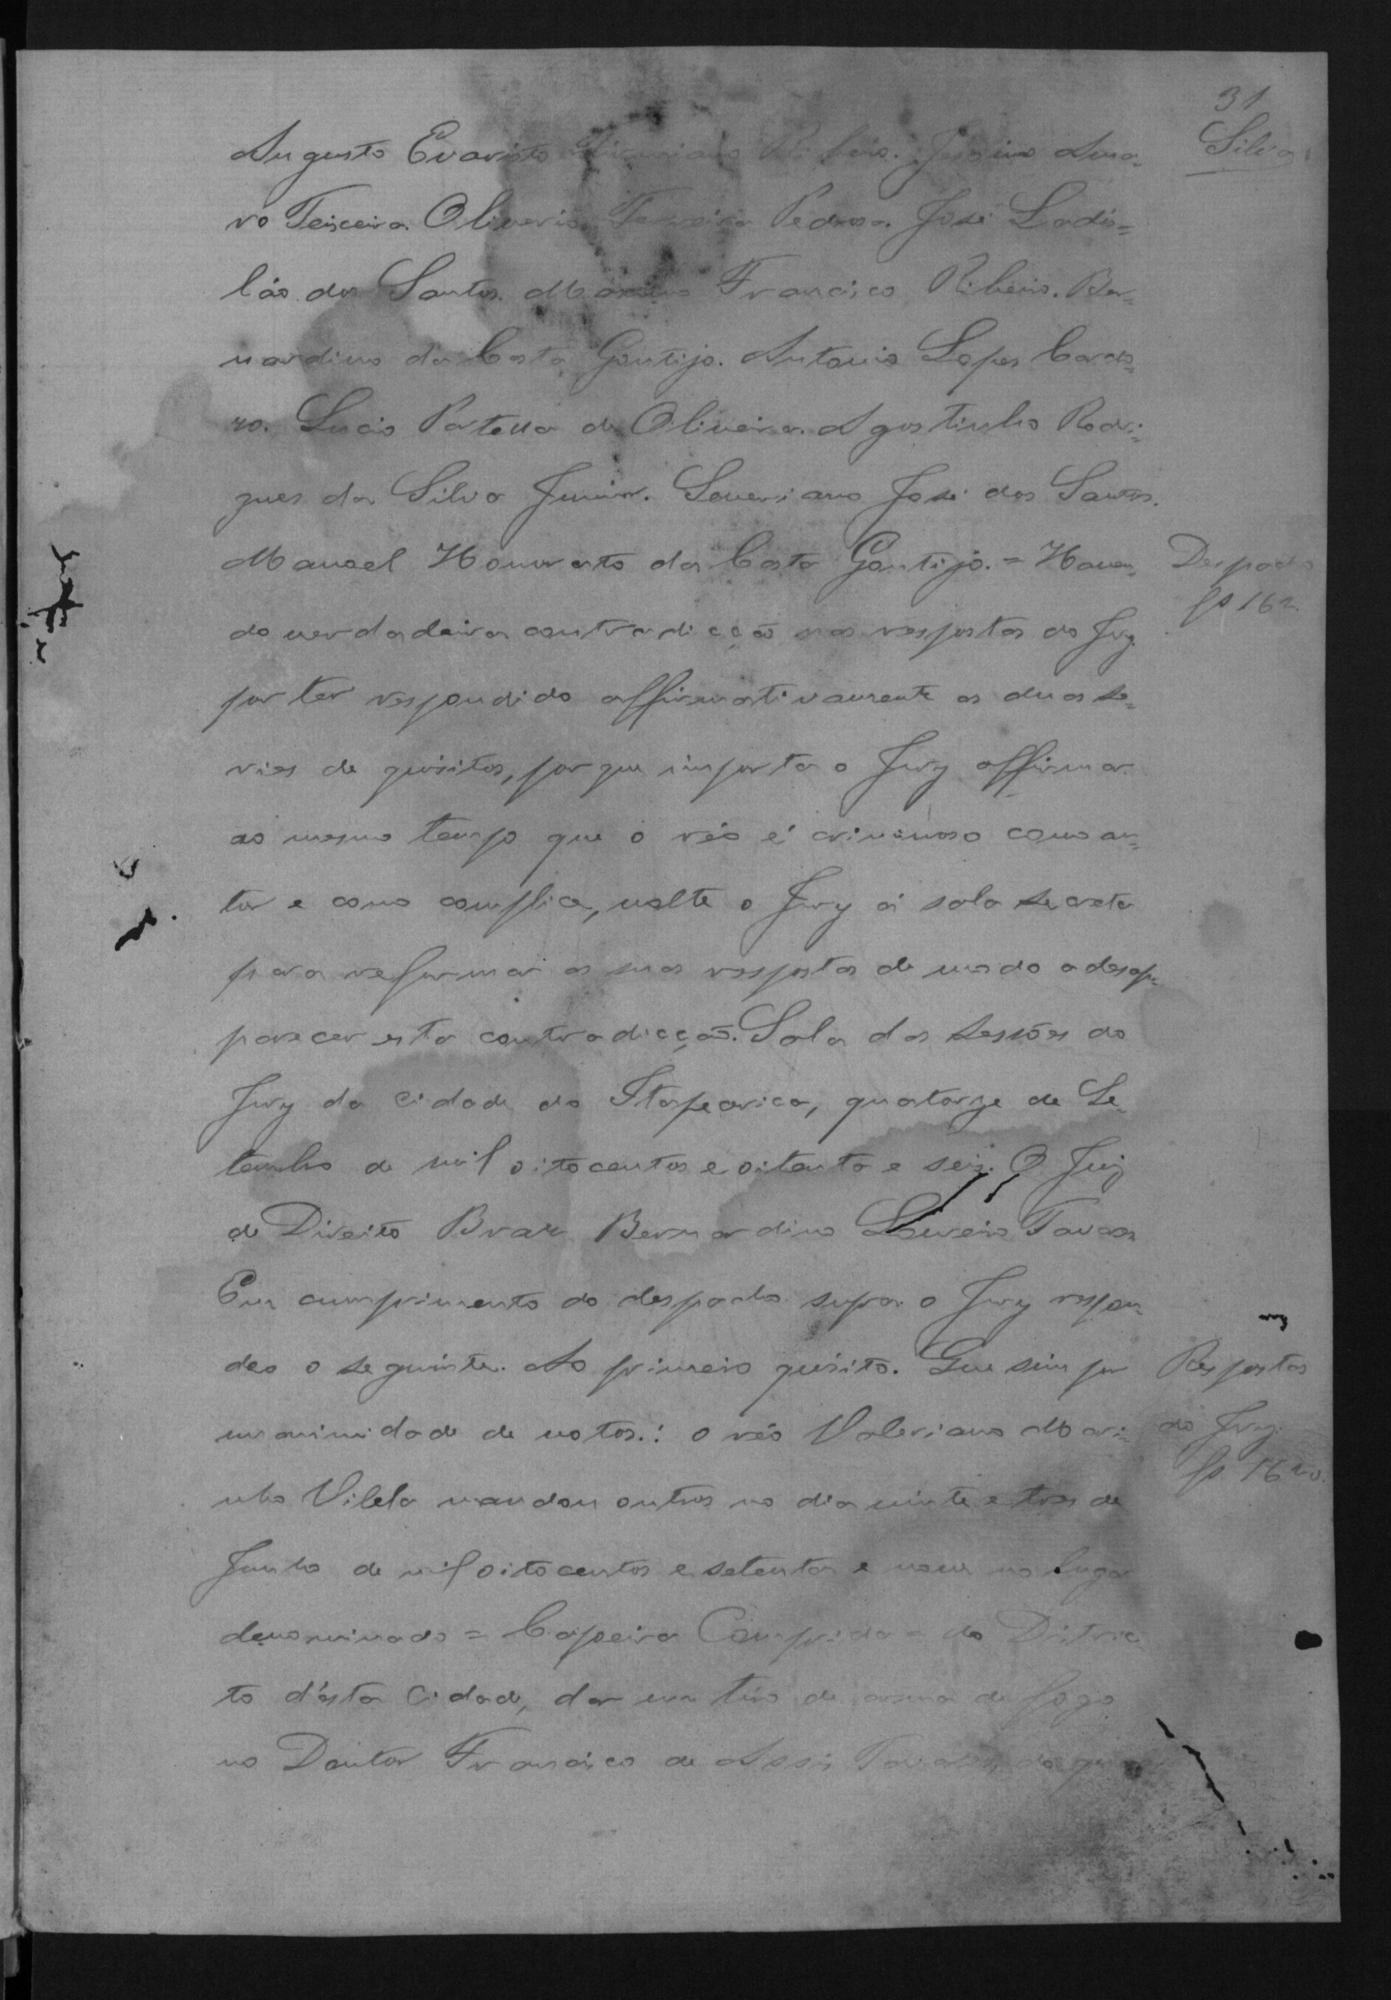 31
Silva
Augusto Evaristo Ribeiro. Jesuino Ama-
ro Teixeira. Oliverio Teixeira Pedrosa. José Ladis=
láo dos Santos. Maximo Francisco Ribeiro. Ber-
nardino da Costa Gontijo. Antonio Lopes Cardo-
zo. Lucio Portella de Oliveira. Agostinho Rodri-
gues da Silva Junior. Severiano José dos Santos.
Manoel Honorato da Costa Gontijo. = Haven-
Despacho
fs 162.
do verdadeira contradicção nas respostas do Jury
por ter respondido affirmativamente as duas se-
ries de quisitos, por que importa o Jury affirmar
ao mesmo tempo que o réo é criminoso como au-
tor e como complice, volte o Jury á sala secreta
para reformar as suas respostas de modo a desap-
parecer esta contradicção. Sala das sessões do
Jury da cidade do Itapecerica, quatorze de Se-
tembro de mil oitocentos e oitenta e seis. O Juiz
de Direito Braz Bernardino Loureiro Tavares
Em cumprimento do despacho supra o Jury respon-
deo o seguinte. Ao primeiro quisito. Que sim por
Respostas
unanimidade de votos.: o réo Valeriano Mari-
do Jury.
fs 162 v.
nho Vilela mandou outros no dia vinte e tres de
Junho de mil oitocentos e setenta e nove no lugar
denominado = Capoeira Comprida = do Distric
to d'esta Cidade, dar um tiro de arma de fogo
no Doutor Francisco de Assis Tavares, do qu